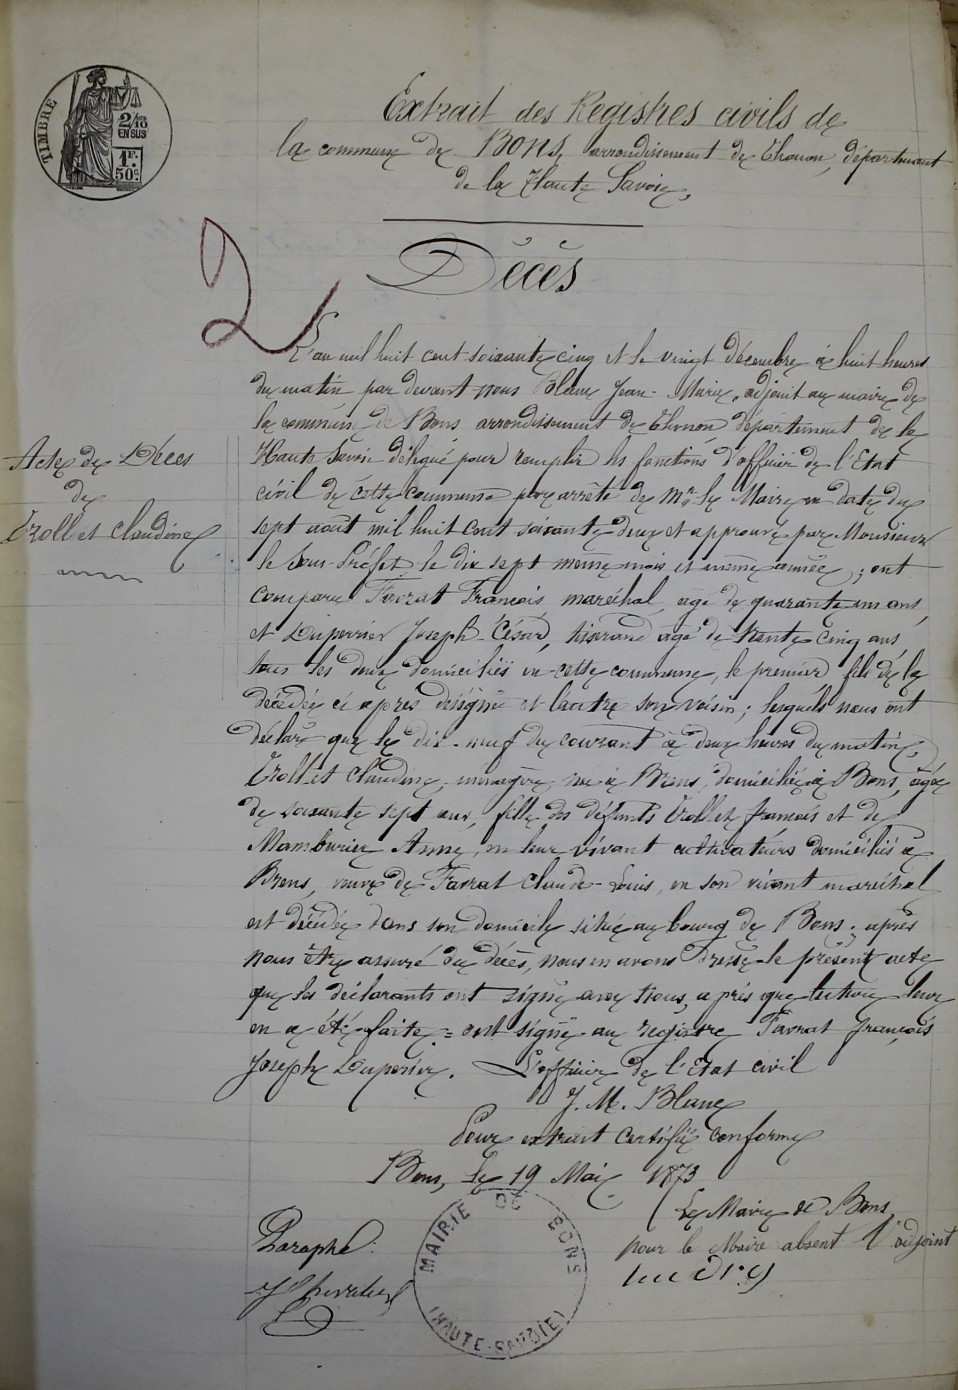 TIMBRE
2/10
EN SUS
1F.
50c.
Extrait des Registres civils de
la commune de Bons, arrondissement de Thonon, département
de la Haute Savoie,
Décès
2
L'an mil huit cent soixante cinq et le vingt décembre à huit heures
du matin, par devant nous Blanc Jean-Marie, adjoint au maire de
la commune de Bons arrondissement de Thonon, département de la
Haute Savoie délégué pour remplir les fonctions d'officier de l'Etat
civil de cette commune par arrêté de Mr le Maire en date du
sept août mil huit cent soixante deux et approuvé par Monsieur
le Sous-Préfet le dix sept même mois et même année; ont
comparu Favrat François, maréchal, âgé de quarante un ans,
et Duperrier Joseph César, tisserand âgé de trente cinq ans
tous les deux domiciliés en cette commune, le premier fils de la
décédée ci après désignée et l'autre son voisin; lesquels nous ont
déclaré que le dix-neuf du courant à deux heures du matin,
Trollet Claudine, ménagère, née à Brens, domiciliée à Bons, âgée
de soixante sept ans, fille des défunts Trollet françois et de
Mamburier Anne, en leur vivant cultivateurs domiciliés à
Brens, veuve de Favrat Claude-Louis, en son vivant maréchal
est décédée dans son domicile situé au bourg de Bons; après
nous être assuré du décès, nous en avons dressé le présent acte
que les déclarants ont signé avec nous, après que lecture leur
en a été faite. = ont signé au registre Favrat françois
Joseph Duperrier. L'officier de l'Etat civil
J. M. Blanc
Pour extrait certifié conforme
Bons, le 19 Mai 1873
Le Maire de Bons
pour le Maire absent l'adjoint
Acte de Décès
de
Trollet Claudine
Paraphé
MAIRIE DE BONS
(HAUTE-SAVOIE)